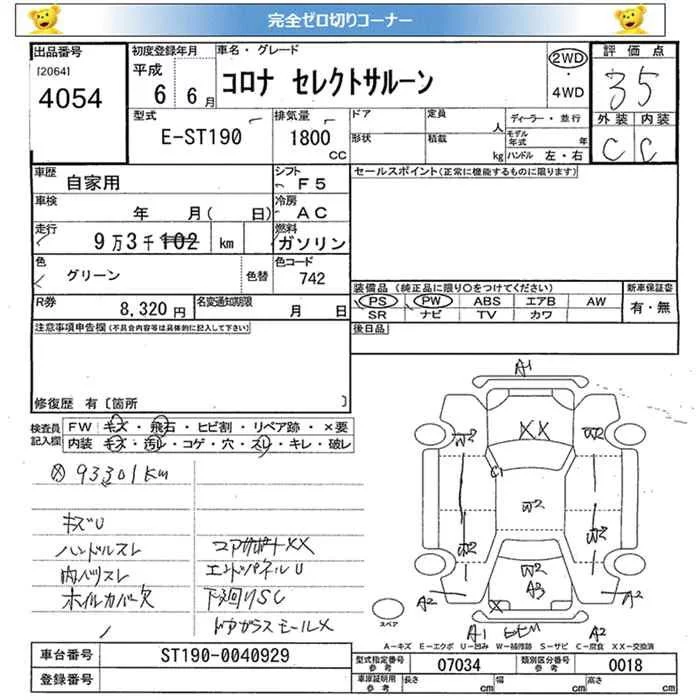 完全ゼロ切りコーナー
出品番号 初度登録年月 車名・グレード 評価点
[2064] 4054 平成 6 6月 コロナ セレクトサルーン 2WD・4WD 35
型式 排気量 ドア 定員 人 ディーラー・並行 外装 内装
E-ST190 1800 CC 形状 積載 kg モデル年式 年 ハンドル 左・右 C C
車歴 自家用 シフト F5 セールスポイント(正常に機能するものに限ります)
車検 年 月( 日) 冷房 AC
走行 9万3千102 km 燃料 ガソリン
色 グリーン 色替 色コード 742
装備品(純正品に限り○をつけてください) 新車保証書
PS PW ABS エアB AW 有・無
SR ナビ TV カワ
R券 8,320円 名変通知期限 月 日
注意事項申告欄(不具合内容等は具体的に記入して下さい) 後日品
修復歴 有〔箇所 〕
検査員記入欄 FW キズ・飛石・ヒビ割・リペア跡・×要
内装 キズ・汚レ・コゲ・穴・スレ・キレ・破レ
93301km
キズU
ハンドルスレ コアサポートXX
内ハリスレ エンドパネルU
ホイルカバー欠 下廻りSC
ドアガラスモールX
A1
XX
W2 W2
C1
W2
W2 W2
W2
A3
A2 X A2
A1 A2
スペア
A-キズ E-エクボ U-凹み W-補修跡 S-サビ C-腐食 XX-交換済
車台番号 ST190-0040929 型式指定番号 参考 07034 類別区分番号 参考 0018
登録番号 車庫証明用 参考 長さ cm 幅 cm 高さ cm